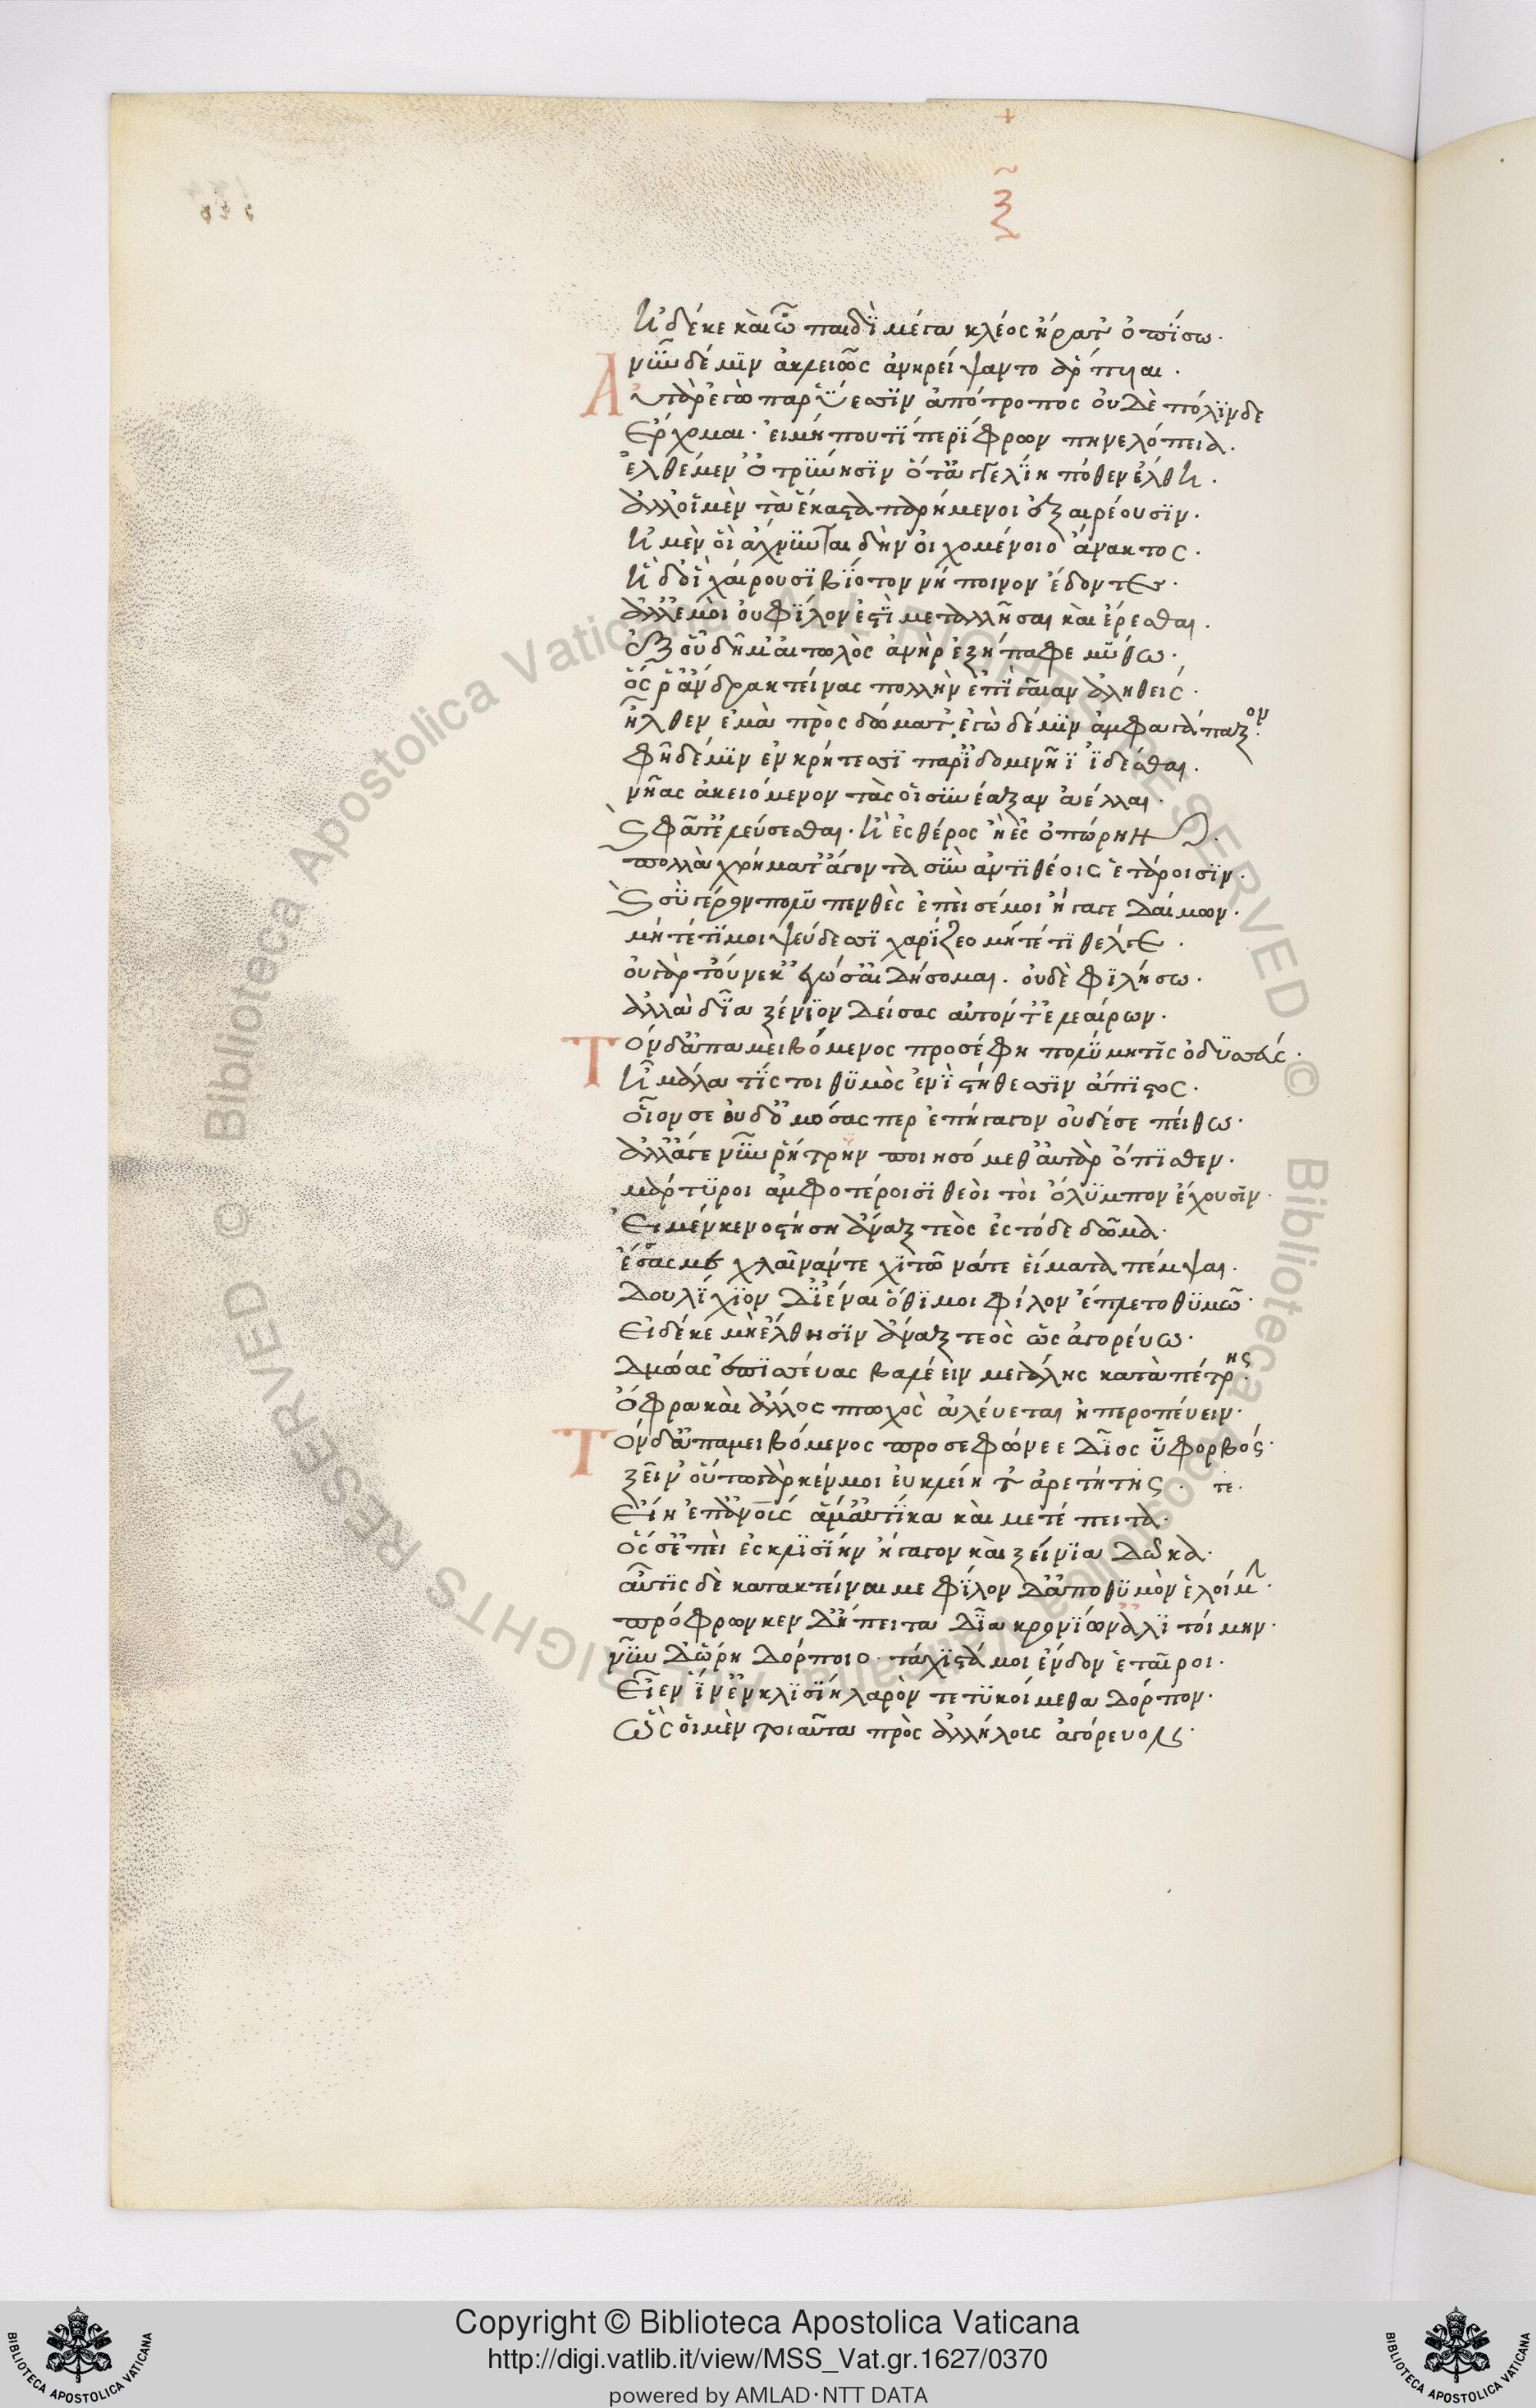 ξ
ἠδέκε καὶ ὧ παιδὶ μέγα κλέος ἤρατ' ὀπίσω.
νῦν δέ μιν ἀκλειῶς ἀνηρείψαντο ἅρπυιαι.
Αὐτὰρ ἐγὼ παρ' ὕεσσιν ἀπότροπος οὐδὲ πόλινδε
ἔρχομαι. εἰ μήπου τι περίφρων πηνελόπεια.
ἐλθέμεν ὀτρύνησιν ὅτ' ἀγγελίη πόθεν ἔλθη.
ἀλλ' οἱ μὲν τὰ ἕκαστα παρήμενοι ἐξαιρέουσιν.
ἠ μὲν οἳ ἄχνυνται δὴν οἰχομένοιο ἄνακτος.
ἠδ' οἳ χαίρουσι βίοτον νήποινον ἔδοντες.
ἀλλ' ἐμοὶ οὐ φίλον ἐστὶ μεταλλῆσαι καὶ ἔρεσθαι.
ἐξ οὗ δή μ' αἰτωλὸς ἀνὴρ ἐξήπαφε μύθω.
ὅς ῥ' ἄνδρα κτείνας πολλὴν ἐπὶ γαῖαν ἀληθείς.
ἦλθεν ἐμὰ πρὸς δώματ' ἐγὼ δέ μιν ἀμφαγάπαζον.
φῆ δέ μιν ἐν κρήτεσσι παρ' ἰδομενῆϊ ἰδέσθαι.
νῆας ἀκειόμενον τάς οἱ συνέαξαν ἄελλαι.
καὶ φάτ' ἐλεύσεσθαι. ἢ ἐς θέρος ἢ ἐς ὀπώρην.
πολλὰ χρήματ' ἄγοντα σὺν ἀντιθέοις ἑτάροισιν.
καὶ σὺ γέρον πολυπενθὲς ἐπεί σέ μοι ἤγαγε δαίμων.
μήτέ τί μοι ψεύδεσσι χαρίζεο μήτέ τι θέλγε.
οὐ γὰρ τοὔνεκ' ἐγώ σ' αἰδήσομαι. οὐδὲ φιλήσω.
ἀλλὰ δία ξένιον δείσας αὐτόν τ' ἐλεαίρων.
Τὸν δ' ἀπαμειβόμενος προσέφη πολύμητις ὀδυσσεύς.
ἦ μάλα τίς τοι θυμὸς ἐνὶ στήθεσσιν ἄπιστος.
οἷόν σε οὐδ' ὀμόσας περ ἐπήγαγον οὐδέ σε πείθω.
ἀλλ' ἄγε νῦν ῥήτρην ποιησόμεθ' αὐτὰρ ὄπισθεν.
μάρτυροι ἀμφοτέροισι θεοὶ τοὶ ὄλυμπον ἔχουσιν.
Εἰ μέν κεν νοστήση ἄναξ τεὸς ἐς τόδε δῶμα.
ἕσσας με χλαῖνάντε χιτῶνάτε εἵματα πέμψαι.
δουλίχιον δ' ἰέναι ὅθι μοι φίλον ἔπλετο θυμῶ.
Εἰ δέ κε μὴ ἔλθησιν ἄναξ τεὸς ὡς ἀγορεύω.
δμῶας ἐπισσεύας βαλέειν μεγάλης κατὰ πέτρης.
ὄφρα καὶ ἄλλος πτωχὸς ἀλεύεται ἠπεροπεύειν.
Τὸν δ' ἀπαμειβόμενος προσεφώνεε δῖος ὑφορβός.
ξεῖν' οὕτω γάρ κέν μοι ἐυκλείη τ' ἀρετήτης. τε.
Εἴη ἐπ' ἀνους ἅμ' αὐτίκα καὶ μετέπειτα.
ὅς σ' ἐπεὶ ἐς κλισίην ἤγαγον καὶ ξείνια δῶκα.
αὖτις δὲ κατακτείναιμε φίλον δ' ἀπο θυμὸν ἑλοίμην.
πρόφρων κεν δ' ἤπειτα δία κρονίων' ἀλιτοίμην.
νῦν δ' ὥρη δόρποιο. τάχιστά μοι ἔνδον ἑταῖροι.
Εἶεν ἵν' ἐν κλισίη λαρὸν τετυκοίμεθα δόρπον.
Ὣς οἱ μὲν τοιαῦτα πρὸς ἀλλήλους ἀγόρευον.
Copyright © Biblioteca Apostolica Vaticana
http://digi.vatlib.it/view/MSS_Vat.gr.1627/0370
powered by AMLAD·NTT DATA
BIBLIOTECA APOSTOLICA VATICANA
BIBLIOTECA APOSTOLICA VATICANA
© Biblioteca Apostolica Vaticana ALL RIGHTS RESERVED
© Biblioteca Apostolica Vaticana ALL RIGHTS RESERVED